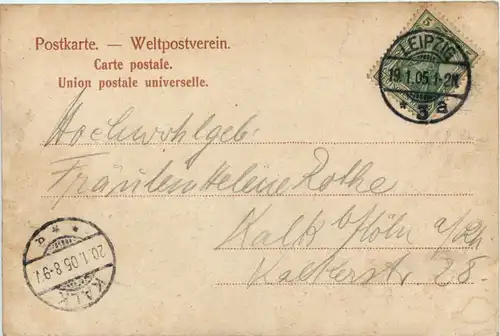 Postkarte. — Weltpostverein.
Carte postale.
Union postale universelle.
5
LEIPZIG
19.1.05.1-2N.
* 3 a
Hochwohlgeb.
Fräulein Helene Rothe
Kalk b/Köln a/Rh
Kalkerstr 28.
KALK
20.1.05.8-9V.
* * a